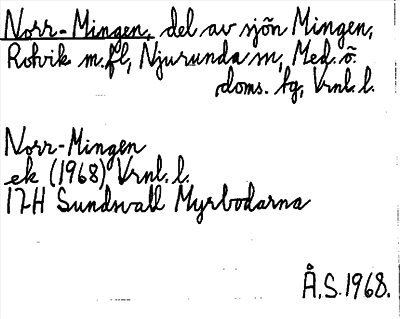 Norr-Mingen, del av sjön Mingen,
Rotvik m.fl, Njurunda sn, Med. ö.
doms. tg, Vrnl. l.
Norr-Mingen
ek (1968) Vrnl. l.
17H Sundsvall Myrbodarna
Å.S. 1968.